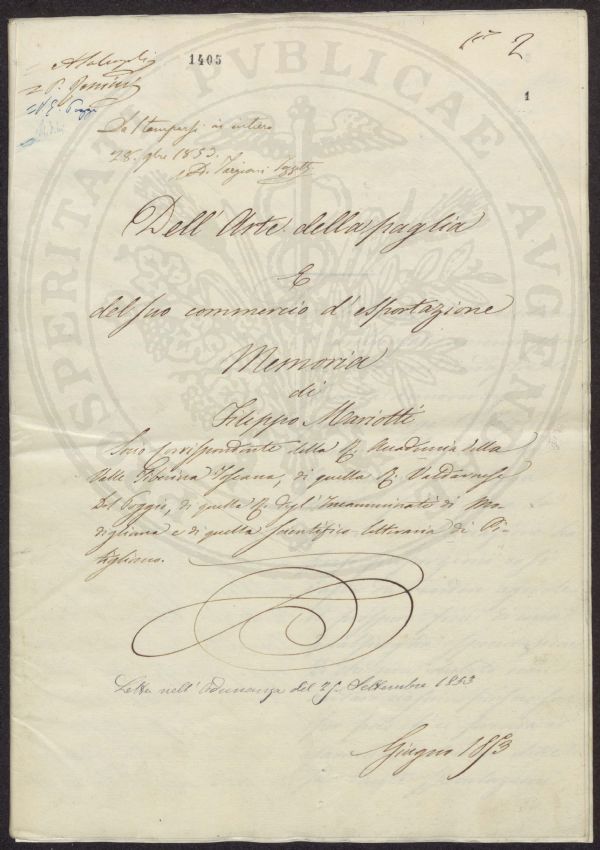 1405
2
1
Da Stamparsi in intiero
28 9bre 1853.
D. Targioni Tozzetti
Dell' Arte della paglia
E
del suo commercio d'esportazione
Memoria
di
Filippo Mariotti
Socio corrispondente della R. Accademia della
Valle Tiberina Toscana, di quella R. Valdarnese
Del Poggio, di quella R. degl' Incamminati di Mo-
digliana e di quella Scientifico-letteraria di Pi-
tigliano.
Letta nell' Adunanza del Settembre 1853
Giugno 1853
PROSPERITATI PVBLICAE AVGENDAE